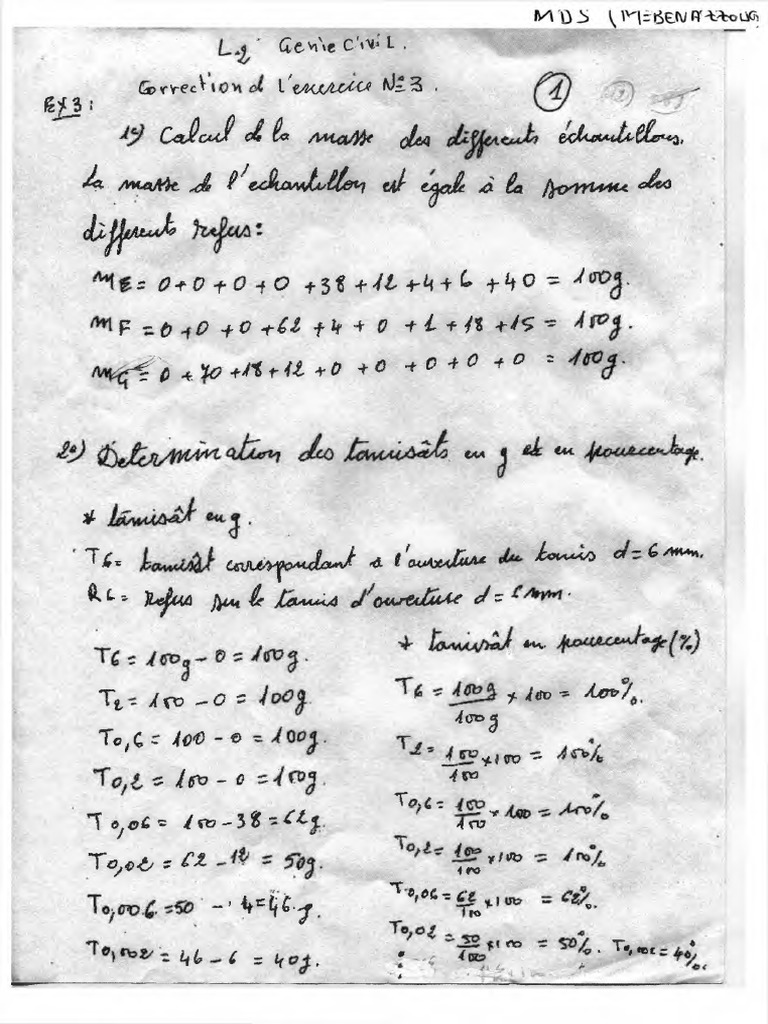 MDS (Mme BENAZZOUG
L2 Genie Civil.
Correction d l'exercice N° 3.
Ex 3:
1
1°) Calcul de la masse des differents échantillons.
La masse de l'echantillon est égale à la somme des
differents refus:
mE = 0+0+0+0+38+12+4+6+40 = 100g.
mF = 0+0+0+62+4+0+1+18+15 = 100g.
mG = 0+70+18+12+0+0+0+0+0 = 100g.
2°) Determination des tamisâts en g et en pourcentage.
* tamisât en g.
T6 = tamisât correspondant à l'ouverture du tamis d=6 mm.
R6 = Refus sur le tamis d'ouverture d= 6mm.
T6 = 100g - 0 = 100g.
T2 = 100 - 0 = 100g.
T0,6 = 100 - 0 = 100g.
T0,2 = 100 - 0 = 100g.
T0,06 = 100 - 38 = 62g.
T0,02 = 62 - 12 = 50g.
T0,006 = 50 - 4 = 46 g.
T0,002 = 46 - 6 = 40g.
* tamisât en pourcentage (%)
T6 = 100g/100g × 100 = 100%.
T2 = 100/100 × 100 = 100%
T0,6 = 100/100 × 100 = 100%
T0,2 = 100/100 × 100 = 100%
T0,06 = 62/100 × 100 = 62%.
T0,02 = 50/100 × 100 = 50%. T0,002 = 40%.